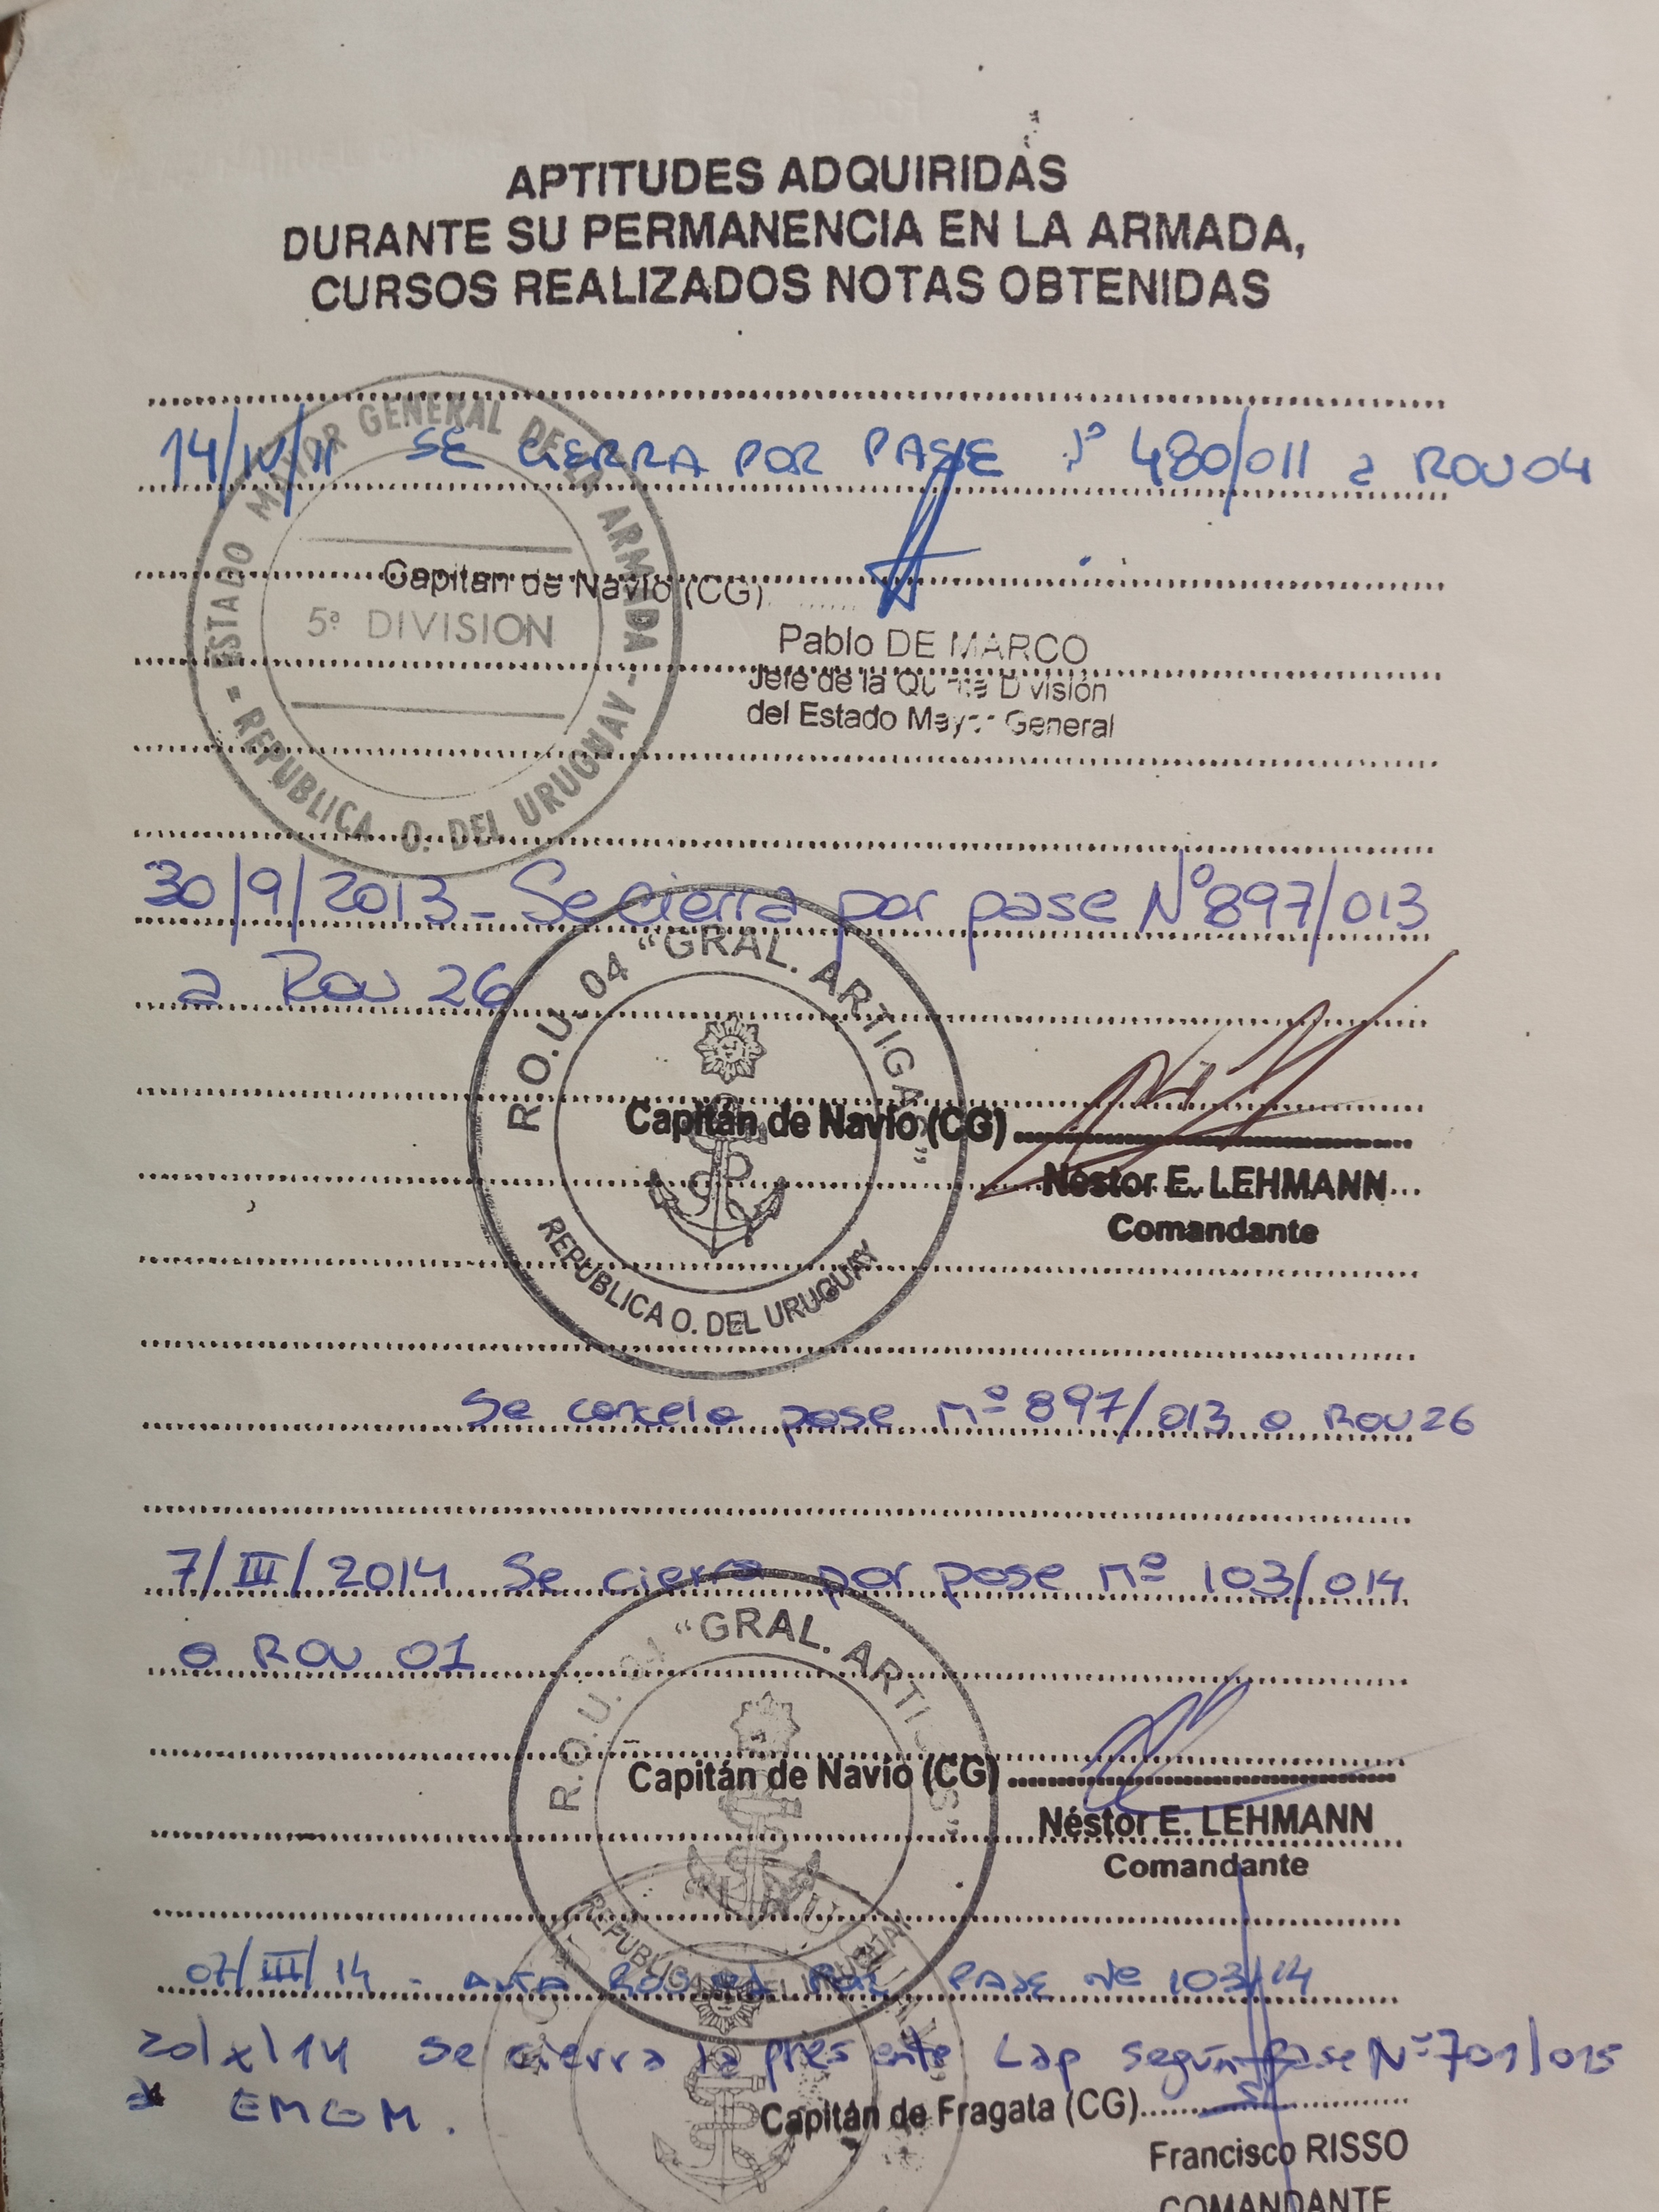 APTITUDES ADQUIRIDAS
DURANTE SU PERMANENCIA EN LA ARMADA,
CURSOS REALIZADOS NOTAS OBTENIDAS
14/IV/11 SE CIERRA POR PASE Nº 480/011 a ROU 04
ESTADO MAYOR GENERAL DE LA ARMADA
5ª DIVISION
- REPUBLICA O. DEL URUGUAY -
Capitan de Navio (CG)
Pablo DE MARCO
Jefe de la Quinta División
del Estado Mayor General
30/9/2013 - Se cierra por pase Nº 897/013
a ROU 26
R.O.U. 04 "GRAL. ARTIGAS"
REPUBLICA O. DEL URUGUAY
Capitán de Navío (CG)
Néstor E. LEHMANN
Comandante
Se cancela pase nº 897/013 a ROU 26
7/III/2014 Se cierra por pase nº 103/014
a ROU 01
R.O.U. 04 "GRAL. ARTIGAS"
REPUBLICA O. DEL URUGUAY
Capitán de Navío (CG)
Néstor E. LEHMANN
Comandante
07/III/14 - ALTA ROU 01 POR PASE Nº 103/14
20/X/14 Se cierra la presente Lap según Pase Nº 701/015
a EMGM.
Capitán de Fragata (CG)
Francisco RISSO
COMANDANTE